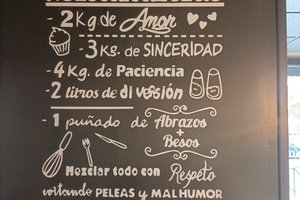 - 2 Kg de Amor
- 3 Kg. de SINCERIDAD
- 4 Kg de Paciencia
- 2 litros de diversión
- 1 puñado de Abrazos
+
Besos
Mezclar todo con Respeto
evitando PELEAS y MALHUMOR